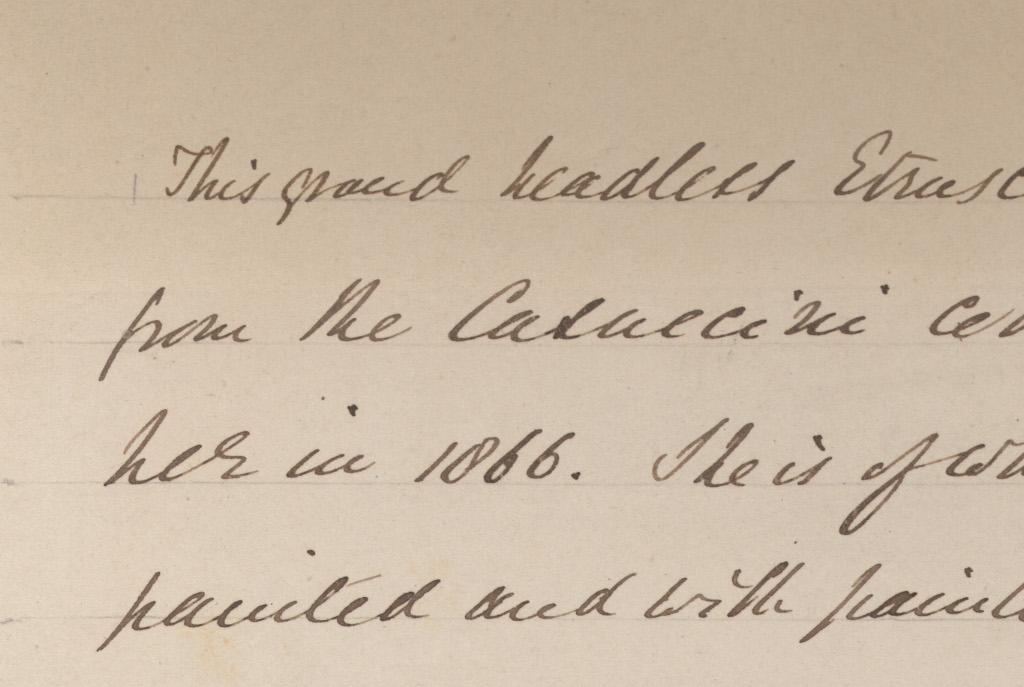 This grand headless Etrusc
from the Casuccini ce
her in 1866. She is of wh
painted and with paint